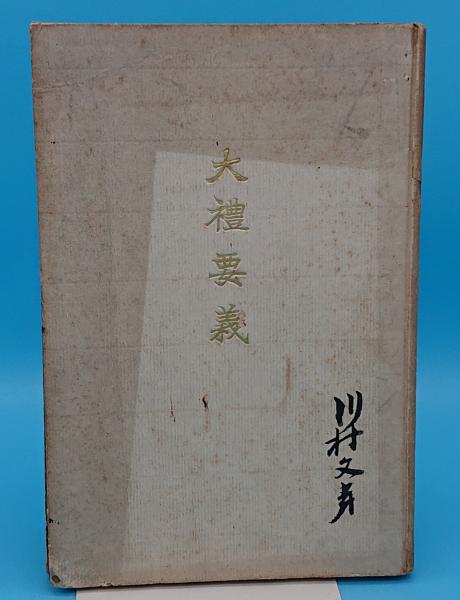 大禮要義
川村文